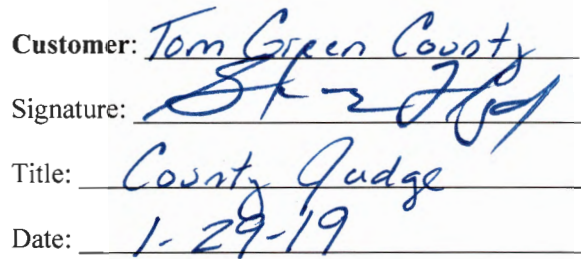 Customer: Tom Green County
Signature:
Title: County Judge
Date: 1-29-19